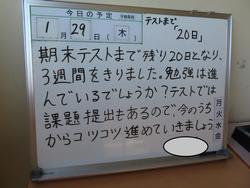 今日の予定
1月29日(木)
テストまで
「20日」
期末テストまで残り20日となり、
3週間をきりました。勉強は進
んでいるでしょうか?テストでは
課題提出もあるので、今のうち
からコツコツ進めていきましょう
月
火
水
金